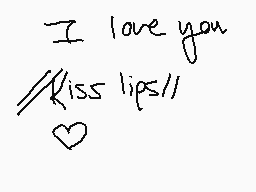 I love you
//Kiss lips//
♡